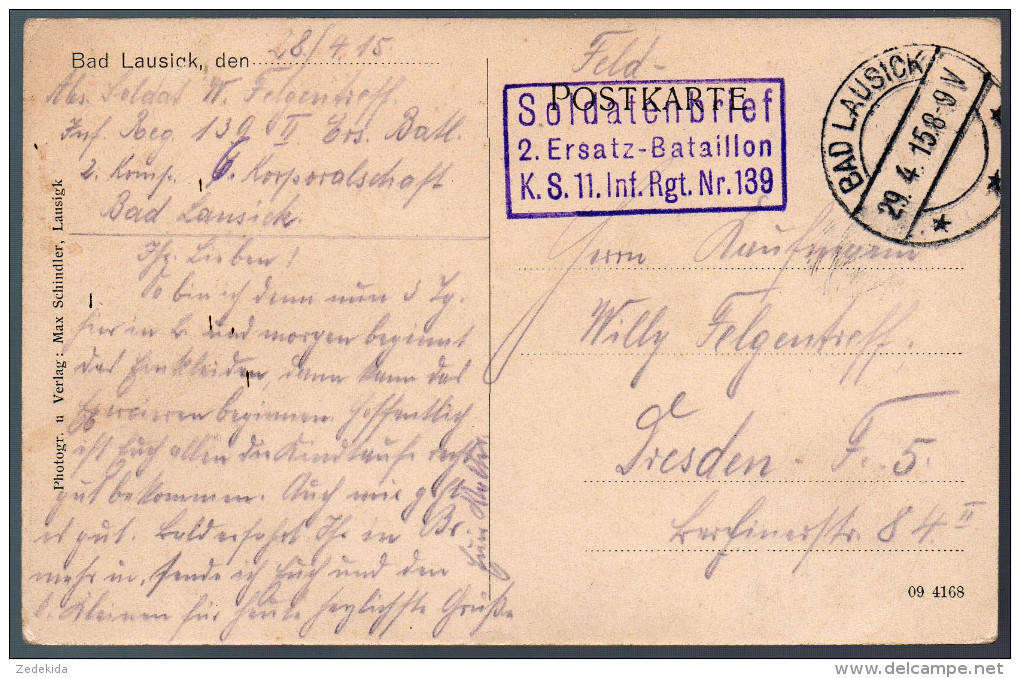 Bad Lausick, den 28/4.15.
Abs. Soldat W. Felgentreff
Inf. Reg. 139 II Ers. Batl.
2. Komp. 6. Korporalschaft
Bad Lausick.
Ihr Lieben!
So bin ich denn nun 3 Tg.
hier in L. und morgen beginnt
das Einkleiden, dann kann das
Exercieren beginnen. Hoffentlich
ist Euch allen die Kindtaufe recht
gut bekommen. Auch mir geht
es gut. Bald erfahrt Ihr in Br.
mehr in, sende ich Euch und den
l. Kleinen für heute herzlichste Grüße
Euer
Photogr. u Verlag: Max Schindler, Lausigk
Feld-
POSTKARTE
Soldatenbrief
2. Ersatz-Bataillon
K. S. 11. Inf. Rgt. Nr. 139
BAD LAUSICK
29. 4. 15. 8-9 V
Herrn
Willy Felgentreff.
Dresden - F. 5.
Berlinerstr. 84 II
09 4168
Zedekida
delcampe.net